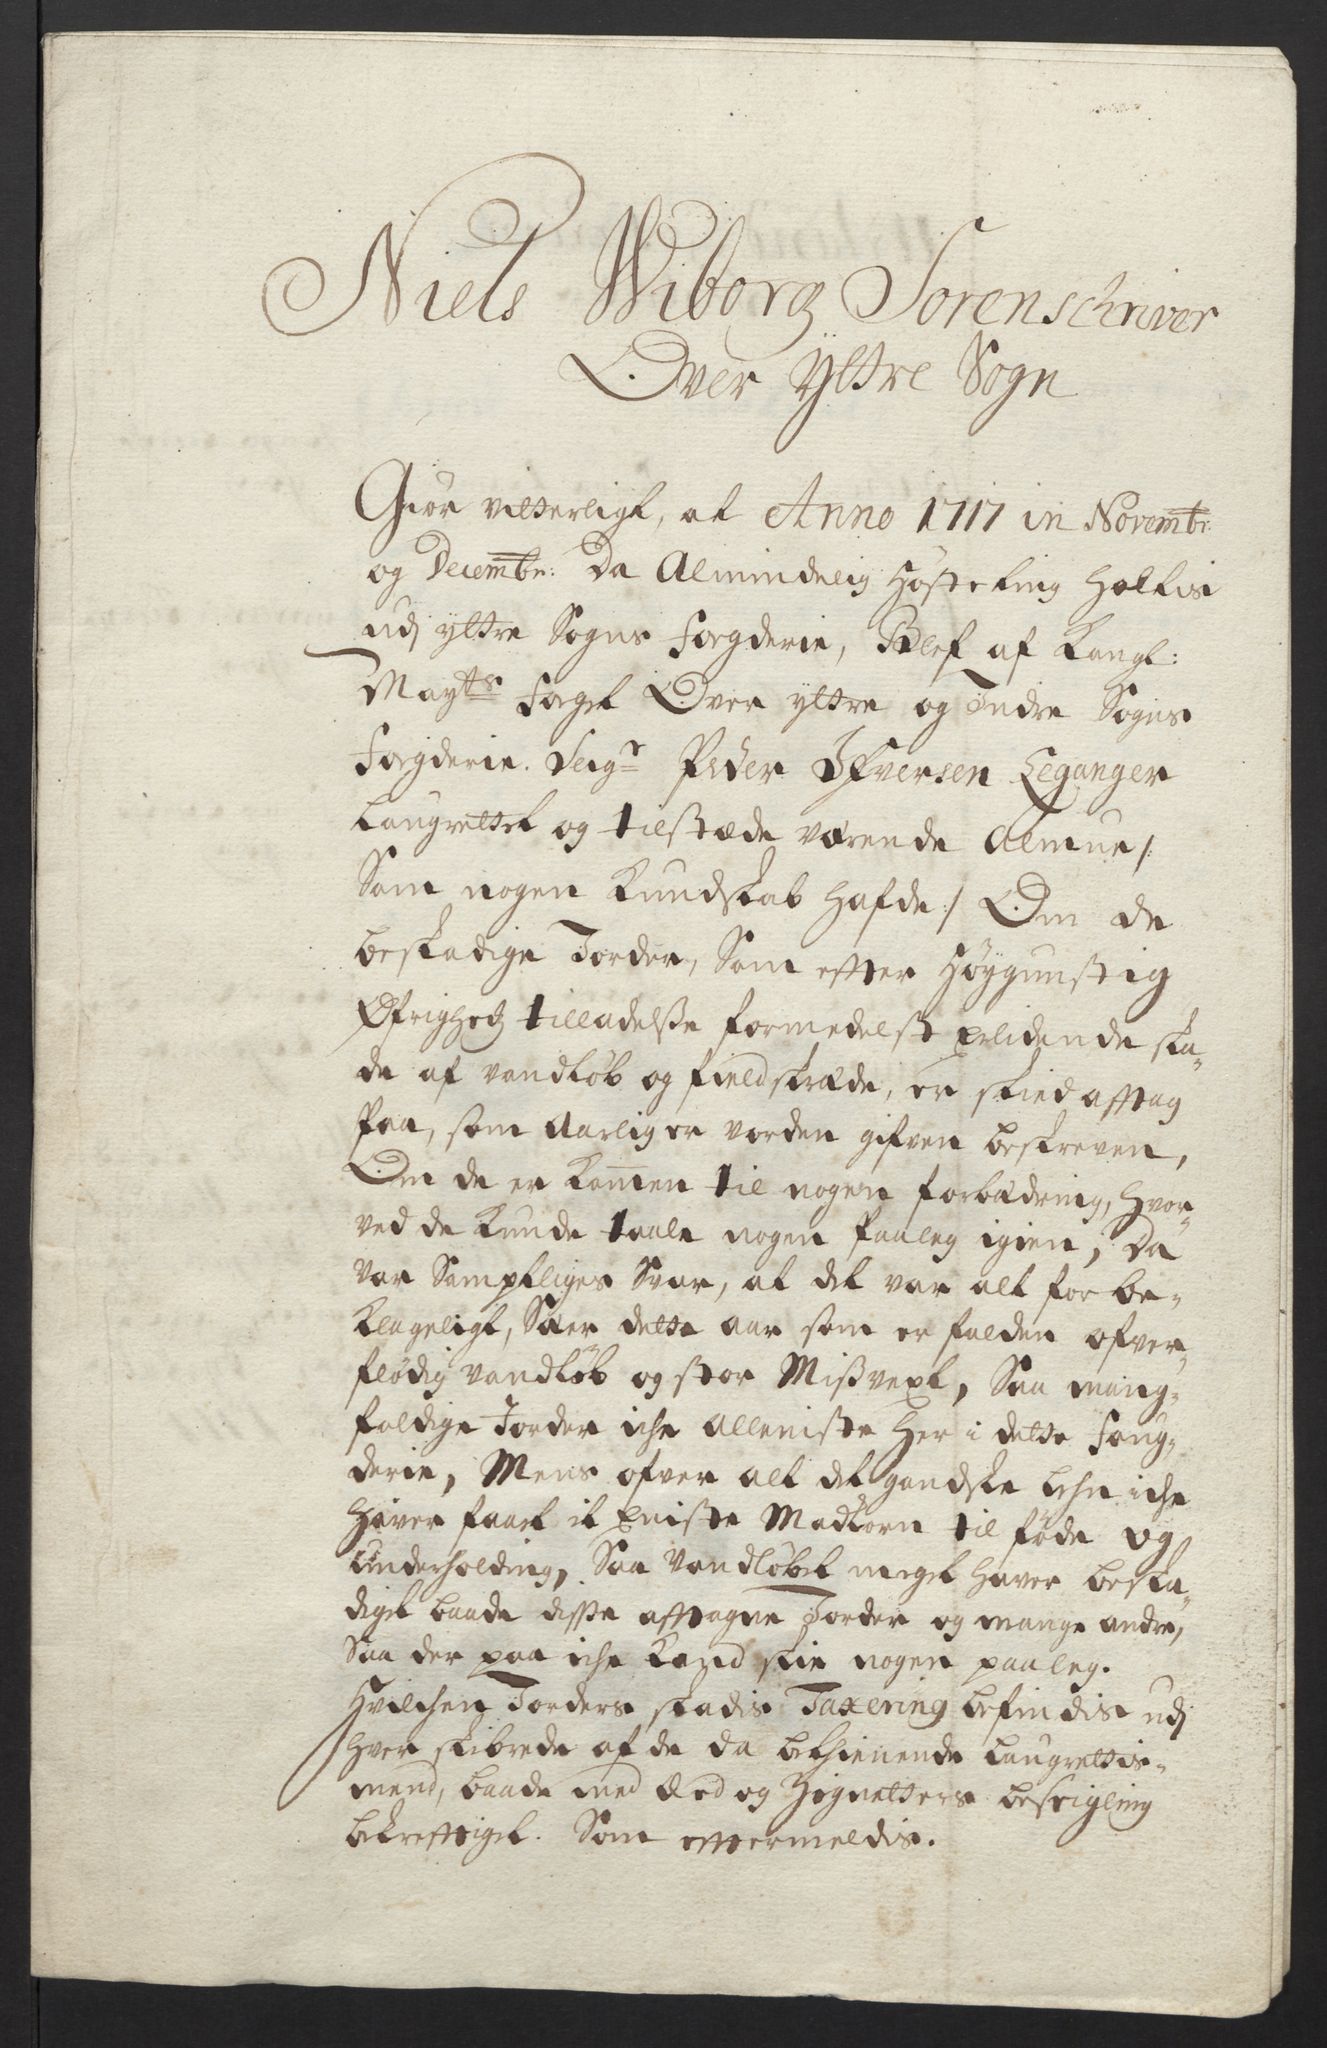 Niels Wiborg Sorenschriver
Over Yttre Sogn
Giør vitterligt, at Anno 1717 in Novembr:
og Decembr: Da Almindelig Høsteting holtis
udj yttre Sogns fogderie, blef af Kongl:
Mayts foget Over yttre og Indre Sogns
fogderie. Seigr Peder Ifversen Leganger
laugrettet og tilstæde værende Almue /:
Som nogen Kundskab hafde :/ Om de
beskadige Jorder, Som efter Høygunstig
Øfrigheds tilladelse formedelst lidende ska-
de af vandløb og fieldskræde, er skied afftag
paa, som Aarlig er vorden gifven beskreven,
Om de er Kommen til nogen forbædring, hvor-
ved de Kunde taale nogen paaleg igien, Da
var Samptliges Svar, at det var alt for be-
klageligt, Sær dette aar som er falden ofver-
flødig vandløb og stor Misvext, Saa mang-
foldige Jorder iche alleniste her i dette foug-
derie, Mens ofver alt det gandske lehn iche
haver faaet it eniste Madkorn til føde og
Underholding, Saa Vandløbet meget haver beska-
diget baade disse afftagne Jorder og mange andre,
Saa der paa iche Kand skie nogen paaleg.
Hvilchen Jorders skadis Taxering befindis udj
hver skibrede af de da betienende laugrettis-
mend, baade med Eed og Zignetters besegling
bekrefftiget. Som efftermeldis.